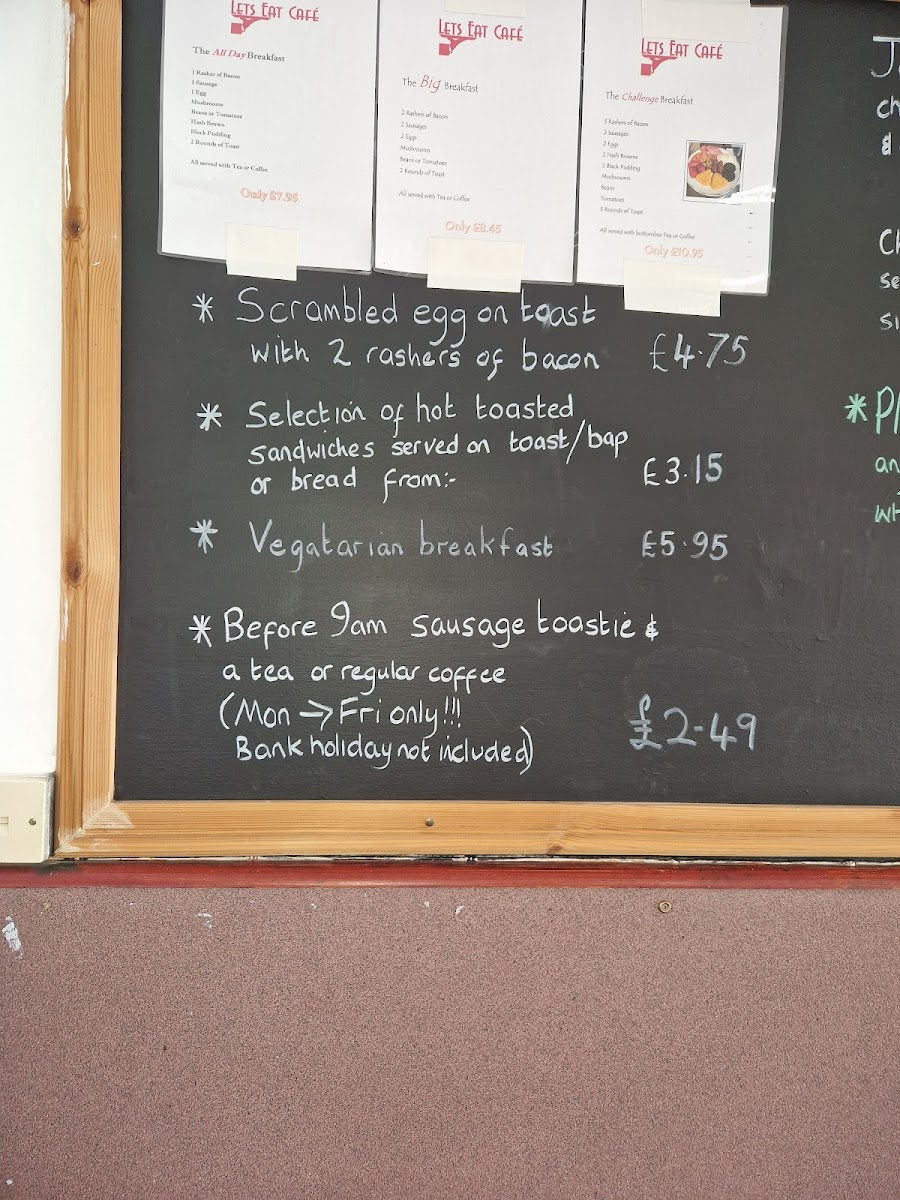 LETS EAT CAFÉ
The All Day Breakfast
1 Rasher of Bacon
1 Sausage
1 Egg
Mushrooms
Beans or Tomatoes
Hash Brown
Black Pudding
2 Rounds of Toast
All served with Tea or Coffee
Only £7.95
LETS EAT CAFÉ
The Big Breakfast
2 Rashers of Bacon
2 Sausages
2 Eggs
Mushrooms
Beans or Tomatoes
2 Rounds of Toast
All served with Tea or Coffee
Only £8.45
LETS EAT CAFÉ
The Challenge Breakfast
3 Rashers of Bacon
2 Sausages
2 Eggs
2 Hash Browns
2 Black Pudding
Mushrooms
Beans
Tomatoes
3 Rounds of Toast
All served with bottomless Tea or Coffee
Only £10.95
* Scrambled egg on toast
with 2 rashers of bacon £4.75
* Selection of hot toasted
sandwiches served on toast/bap
or bread from:- £3.15
* Vegatarian breakfast £5.95
* Before 9am sausage toastie &
a tea or regular coffee
(Mon → Fri only!!!
Bank holiday not included) £2-49